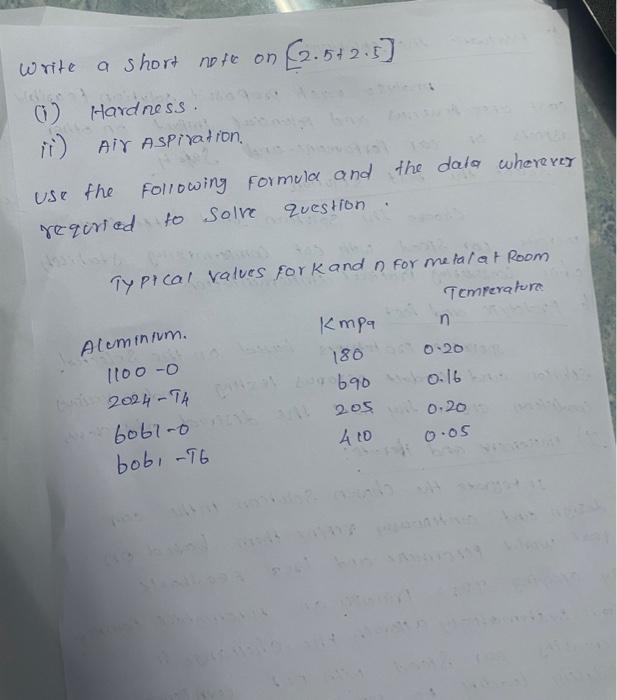 Write a short note on [2.5+2.5]
(i) Hardness.
ii) Air Aspiration.
use the Following Formula and the data wherever
requried to Solve question.
Typical values for K and n For metal at Room
Temperature
Aluminium. K mpa n
1100-0 180 0.20
2024-T4 690 0.16
6061-0 205 0.20
6061-T6 410 0.05